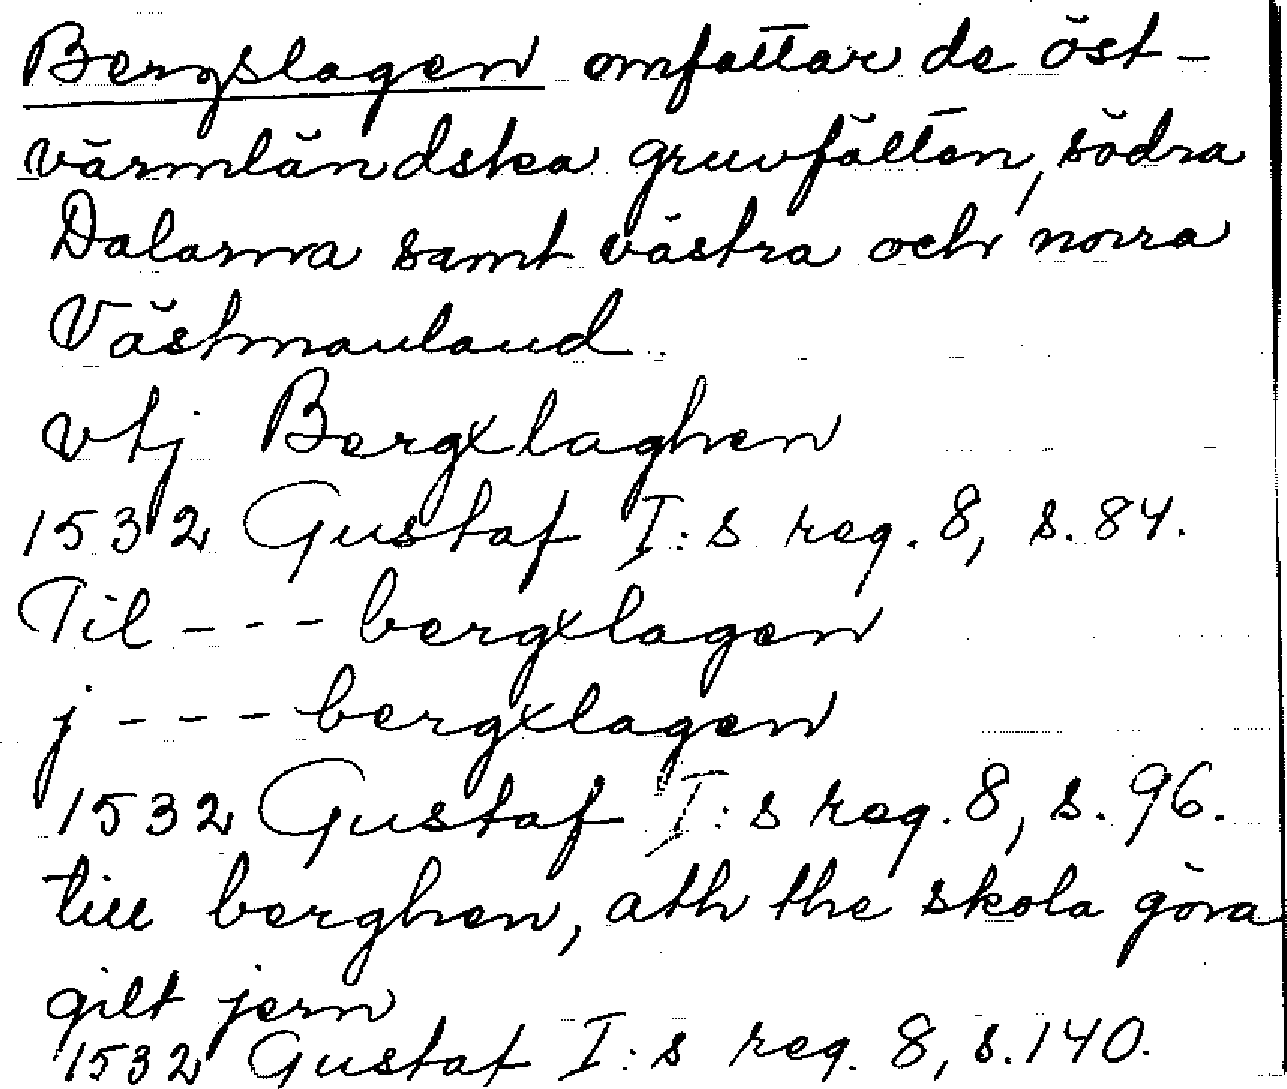 Bergslagen omfattar de öst-
värmländska gruvfälten, södra
Dalarna samt västra och norra
Västmanland.
vtj Bergxlaghen
1532 Gustaf I:s reg. 8, s. 84.
Til --- bergxlagen
j --- bergxlagen
1532 Gustaf I:s reg. 8, s. 96.
till berghen, ath the skola göra
gilt jern
1532 Gustaf I:s reg. 8, s. 140.